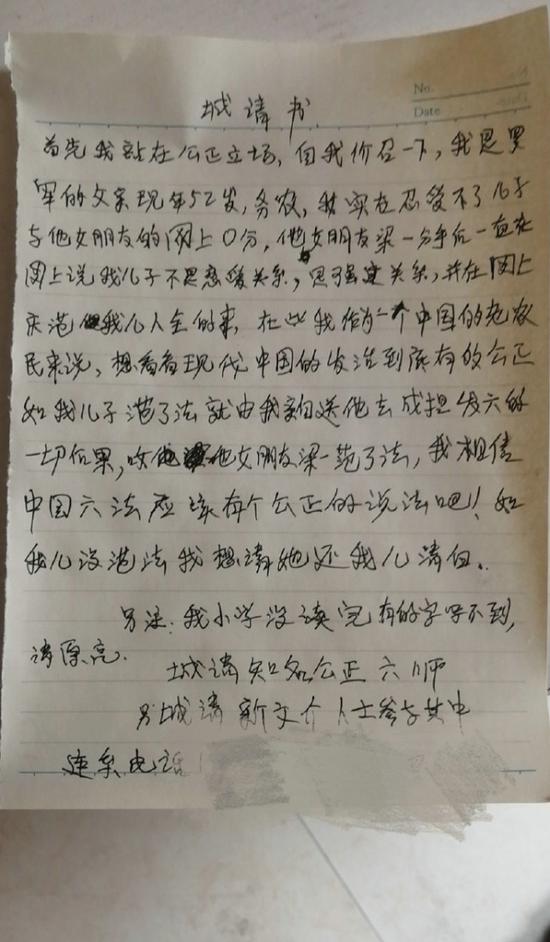 No.
Date
城请书
首先我站在公正立场，自我价召一下，我是罗
军的父亲现年52岁，务农，我实在忍受不了儿子
与他女朋友的网上0分，他女朋友梁一分手后一直在
网上说我儿子不是恋爱关系，是强迫关系，并在网上
我儿人全的事，在此我作为一个中国的老农
民来说，想看看现代中国的发治到底有的公正
如我儿子范了法就由我亲自送他去成担发六的
一切后果，他女朋友梁一范了法，我相信
中国六法应该有个公正的说法吧！如
我儿没范法我想请她还我儿清白.
另注：我小学没读完有的字写不到，
请原亮.
城请知名公正六师
另城请新文介人士参与其中
连系电话